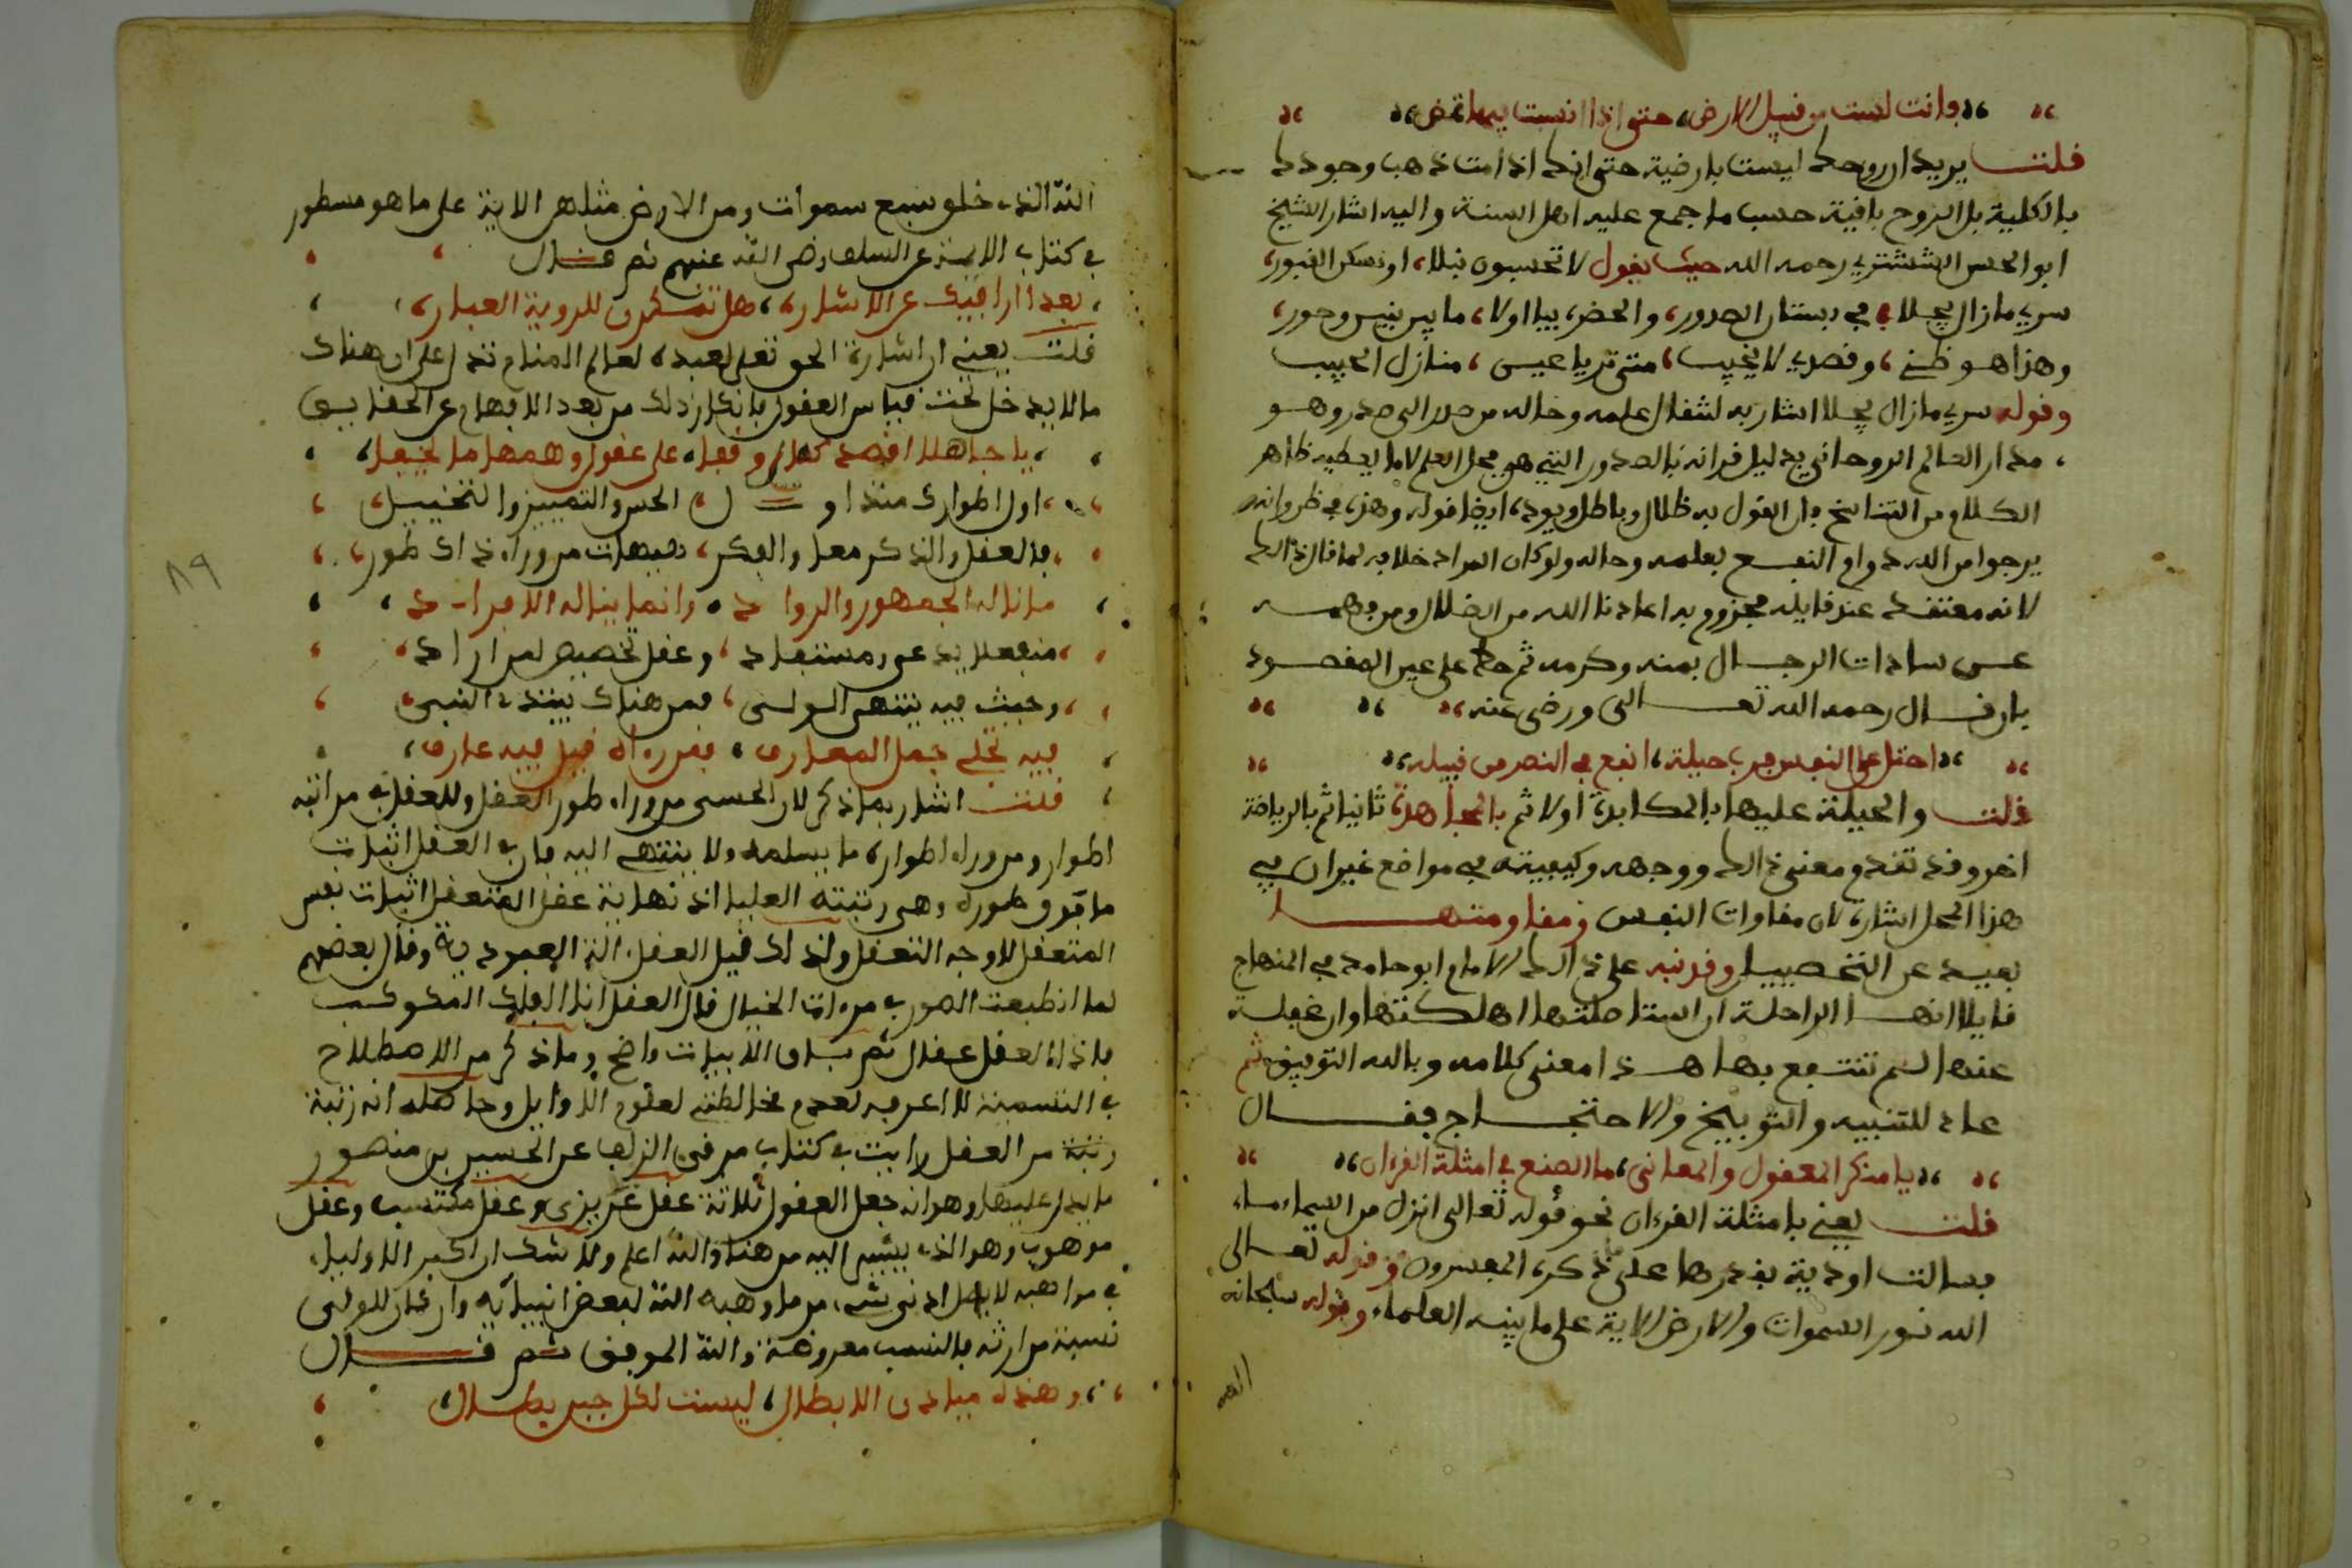 وانت لست من قبيل الارض، حتى اذا انست بها تمض
قلت يريد ان روحك ليست بارضية حتى انك اذا مت ذهب وجودك
بالكلية بل الروح باقية حسب ما اجمع عليه اهل السنة واليه اشار الشيخ
ابو الحسن الششتري رحمه الله حيث يقول لا تحسبون نبلا، او نسكن القبور،
سري ما زال يجلا، في بستان الصدور، والحضر، بيا اولا، ما بين بنيس وحور،
وهذا هو ظني، وقصدي لا يخيب، متى تري يا عيني، منازل الحبيب
وقوله سري ما زال يجلا اشار به لشغال علمه وحاله من صدر الى صدر وهو
مدار العالم الروحاني بدليل قرانه بالصدور التي هي محل العلم لا ما يعطيه ظاهر
الكلام من التناسخ فان القول به ظلال وباطل ويؤيد، ايضا قوله وهذا هو ظني وانه
يرجوا من الله دوام النفع بعلمه وحاله ولو كان المراد خلافه لما قال ذالك
لانه معتقد عند قايله مجزوم به اعاذنا الله من الضلال ومن فهمه
عن سادات الرجال بمنه وكرمه ثم حظ على عين المقصود
بان قال رحمه الله تعالى ورضي عنه
احتل على النفس فرب حيلة، انفع في النصر من قبيله
قلت والحيلة عليها بالمكابدة اولا ثم بالمجاهدة ثانيا ثم بالرياضة
اخر وقد تقدم معنى ذالك ووجهه وكيفيته في مواضع غير ان في
هذا المحل اشارة لان مقاوات النفس ومقاومتها
بعيد عن التحصيل وقد نبه على ذالك الامام ابو حامد في المنهاج
قايلا انها الراحلة ان استاصلتها اهلكتها وان غفلت
عنها لم تنتفع بها هذا معنى كلامه وبالله التوفيق ثم
عاد للتنبيه والتوبيخ والاحتجاج فقال
يا منكر المعقول والمعاني، ما الصنع في امثلة القرءان
قلت يعني بامثلة القرءان نحو قوله تعالى انزل من السماء ماء
فسالت اودية بقدرها على ما ذكره المفسرون وقوله تعالى
الله نور السموات والارض الاية على ما بينه العلماء وقوله سبحانه
الله
الله الذي خلق سبع سموات ومن الارض مثلهن الاية على ما هو مسطور
في كتاب الاية عن السلف رضي الله عنهم ثم قال
بعد اذا اراقيك عن الاشارة، هل تفتكرن للروية العبارة
قلت يعني ان اشارة الحق تعلى لعبده لعالم المنام تدل على ان هناك
ما لا يدخل تحت قياس العقول بانكار ذلك من بعد الافهام عن الحقايق
يا جاهلا اقصد كفا وقفا، على عقول وهمها ما تخيفا
اول اطوارك منذ او ل الحس والتمييز والتخييل
فالعقل والذكر معا والفكر، هيهات من وراء ذاك طور
ما ناله الجمهور والرواد، وانما يناله الافراد
منفعلا يدعى ومستفاد، وعقل تخصيص لمن اراد
وحيث فيه ينتهي الولي، فمن هناك يبتدء النبي
فيه تجلى جمل المعارف، فمن رءاه قيل فيه عارف
قلت اشار بما ذكر لان الحسى من وراء طور العقل وللعقل في مراتبه
اطوار ومن وراء اطواره ما يسلمه ولا ينتهي اليه فان في العقل اثبات
ما فوق طوره وهي رتبته العليا اذ نهاية عقل المتعقل اثبات نفس
المتعقل لا وجه التعقل ولذلك قيل العقل الة العبودية وقال بعضهم
لما انطبعت الصور في مرءات الخيال قال العقل انا الفلك المكوكب
فاذا العقل عقال ثم باق الابيات واضح وما ذكر من الاصطلاح
في التسمية لا اعرفه لعدم مخالطتي لعلوم الاوايل وحاصله انه رتبة
رتبة من العقل رايت في كتاب مرقى الزلفا عن الحسين بن منصور
ما يدل عليها وهو انه جعل العقول ثلاثة عقل غريزي وعقل مكتسب وعقل
موهوب وهو الذي يشير اليه من هنا والله اعلم ولا شك ان اكبر الاولياء
في مواهبه لا يصل ادنى شيء مما وهبه الله لبعض انبيايه وان كان للولي
نسبة من ارثه فالنسب معروفة والله الموفق ثم قال
وهذه ميادن الابطال، ليست لكل جبن بطال
٨٩